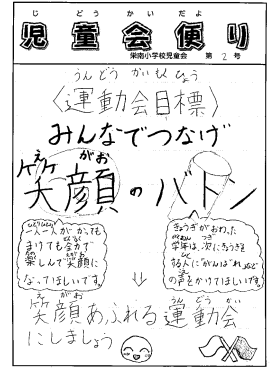 じ どう かい だよ
児童会便り
栄南小学校児童会 第2号
うん どう かい もく ひょう
〈運動会目標〉
みんなでつなげ
え がお
笑顔のバトン
一人一人がかっても
まけても全力で
楽しんで笑顔に
なってほしいです。
きょうぎがおわった
学年は、次にきょうぎを
する人に"がんばれ"などの
声をかけてほしいです。
↓
え がお うん どう かい
笑顔あふれる運動会
にしましょう